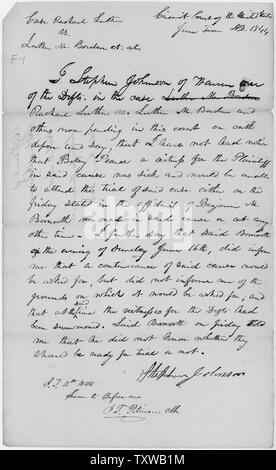 Case Rachael Luther
vs.
Luther M. Borden et. als
Circuit Court of the United States
June Term A.D. 1844
F-1
I Stephen Johnson of Warren one
of the Defts. in the case Luther M. Borden
Rachael Luther vs. Luther M. Borden and
others now pending in this court on oath
depose and say, that I have not had notice
that Pearce a witness for the Plaintiff
in said cause was sick and would be unable
to attend the trial of said case either on the
friday stated in the affidavit of Benjamin M.
Bosworth in said cause or at any
other time. I further say that said Bosworth
on the evening of Sunday June 16th, did inform
me that a continuance of said cause would
be asked for, but did not inform me of the
grounds on which it would be asked for, and
that the witnesses for the Defts had
been summoned. Said Bosworth on friday told
me that he did not know whether they
should be ready for trial or not.
Stephen Johnson
1844
Sworn to before me
Pitman Clk
alamy
Image ID: TXWB1M
www.alamy.com